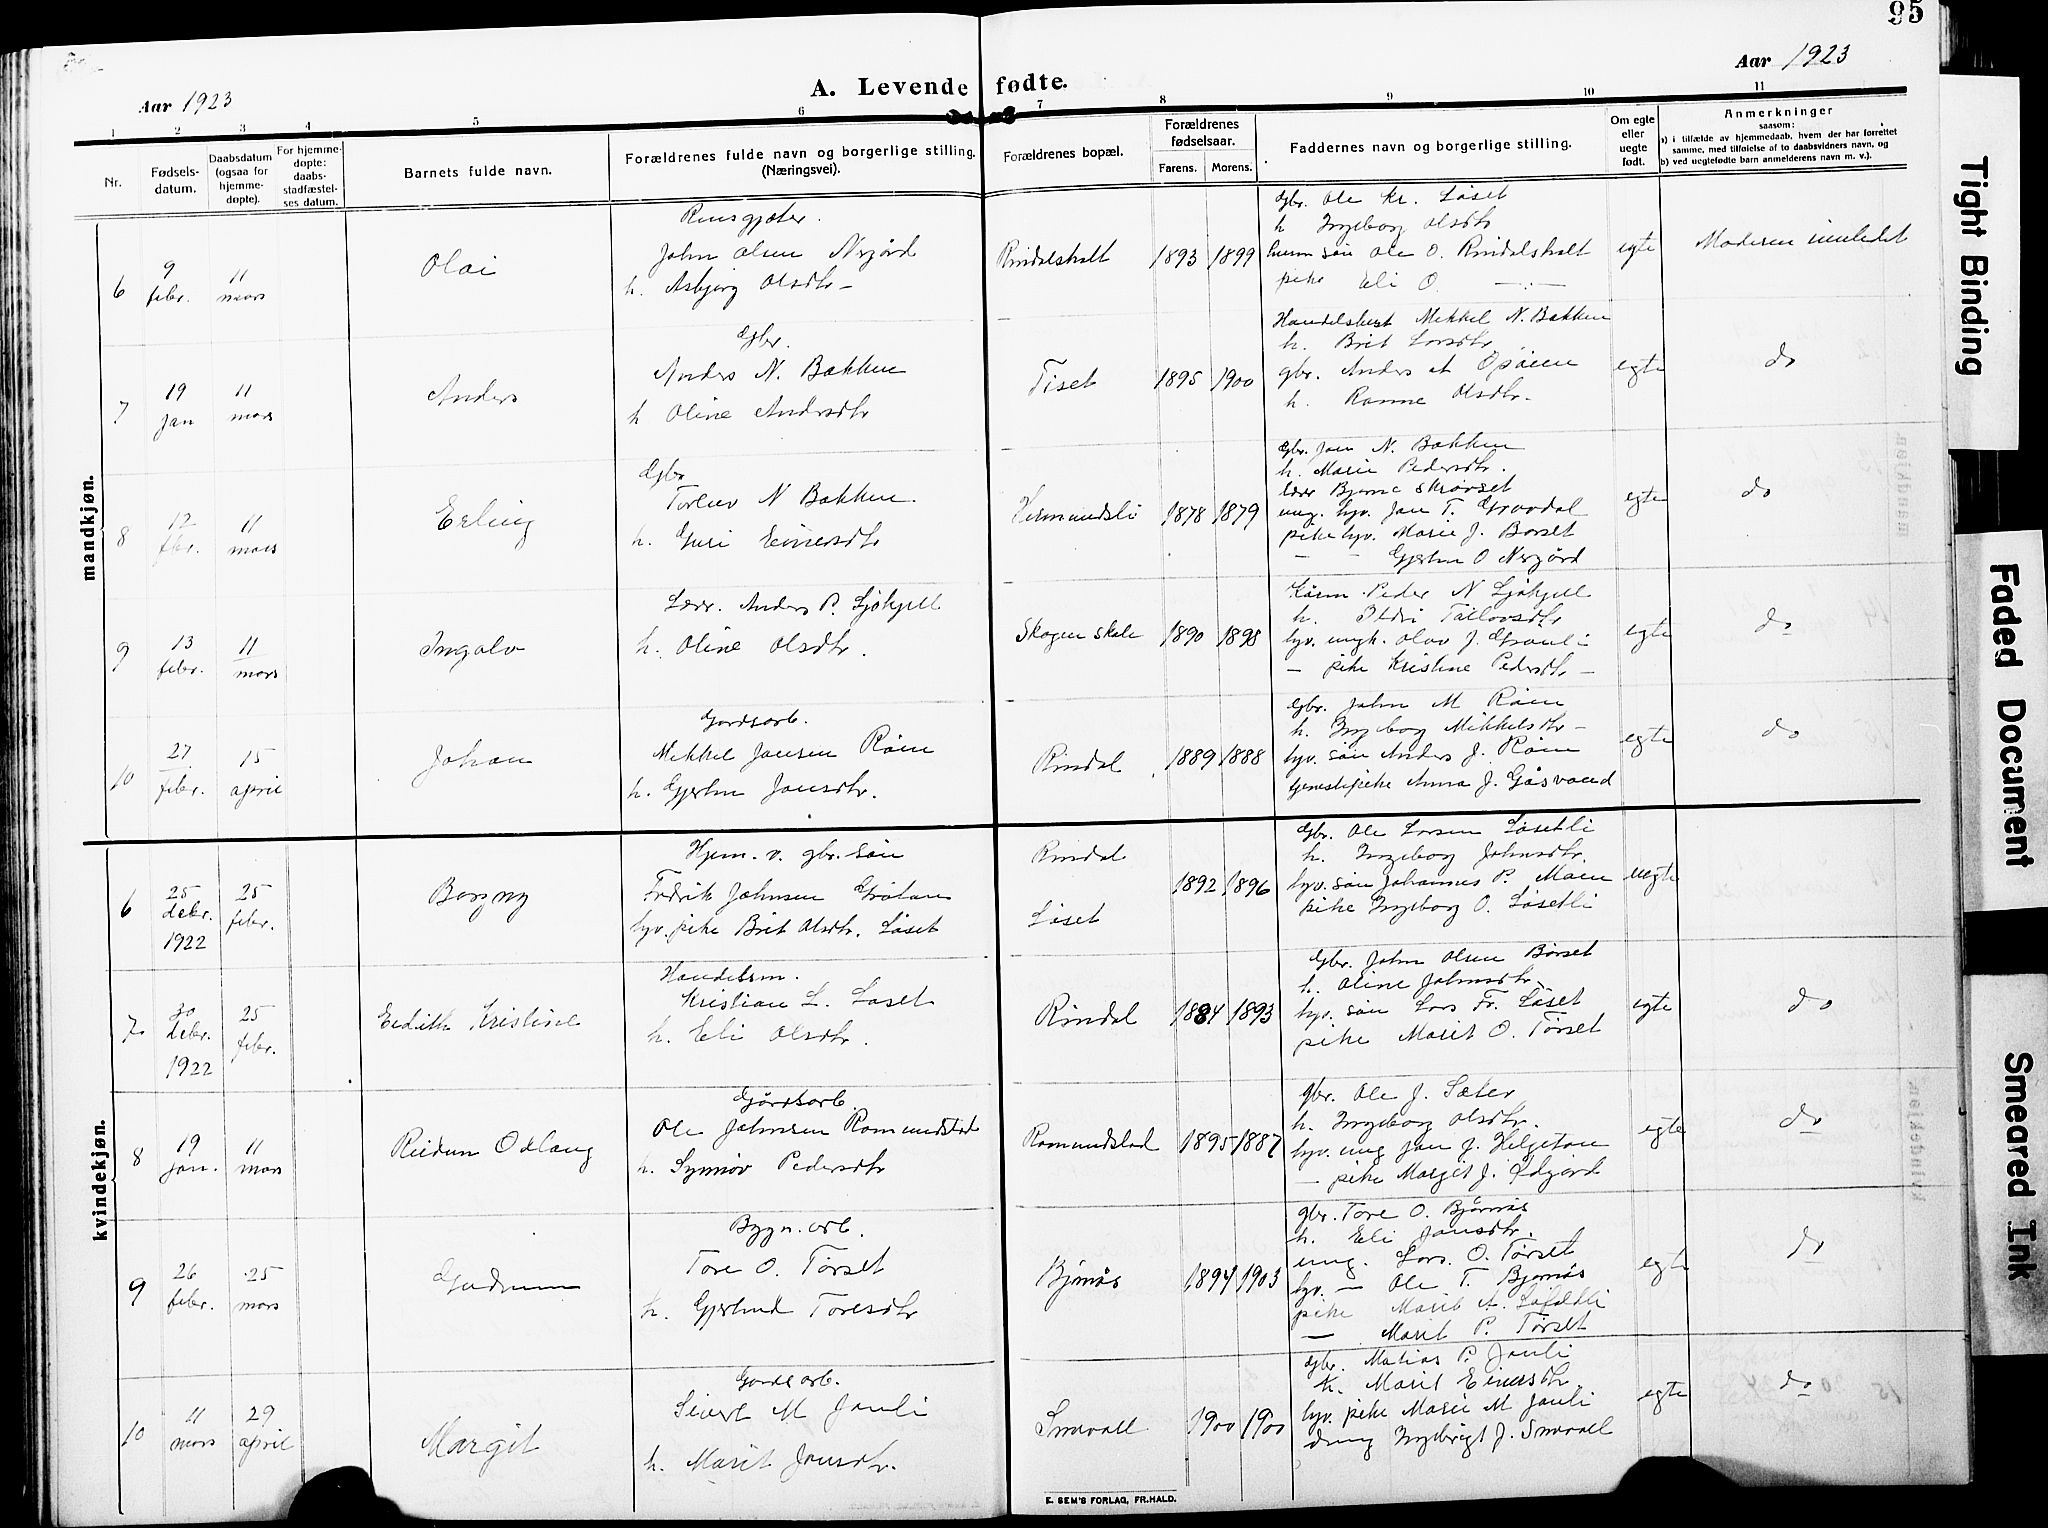 95
Aar 1923
Aar 1923
A. Levende fødte.
1 2 3 4 5 6 7 8 9 10 11
Nr.
Fødsels-
datum.
Daabsdatum
(ogsaa for
hjemme-
døpte).
For hjemme-
døpte:
daabs-
stadfæstel-
ses datum.
Barnets fulde navn.
Forældrenes fulde navn og borgerlige stilling.
(Næringsvei).
Forældrenes bopæl.
Forældrenes
fødselsaar.
Farens. Morens.
Faddernes navn og borgerlige stilling.
Om egte
eller
uegte
født.
Anmerkninger
saasom:
a) i tilfælde av hjemmedaab, hvem der har forrettet
samme, med tilføielse af to daabsvidners navn, og
b) ved uegtefødte barn anmelderens navn m. v.).
mandkjøn.
6
9
febr.
11
mars
Olai
Rensgjæter.
John Olsen Nergård
h. Asbjørg Olsdtr –
Rindalsholt
1893 1899
Gbr. Ole Kr. Løset
h Ingeborg Olsdtr
husm søn Ole O. Rindalsholt
pike Eli O. —
egte
Moderen innledet
7
19
jan
11
mars
Anders
Gbr.
Anders N. Bakken
h Oline Andersdtr
Tiset
1895 1900
Handelsbest Mikkel N. Bakken
h. Brit Larsdtr
gbr. Anders A Opøien
h. Ranne Olsdtr.
egte
do
8
12
febr.
11
mars
Erling
Gbr
Torleiv N Bakken.
h. Guri Einersdtr
Hermundsli
1878 1879
Gbr. Jon N. Bakken
h. Marie Pedersdtr.
lærer Bjarne Skrøvset
ung. hjv. Jon T. Grøvdal
pike hjv. Marie J. Børset
— — Gjertru O Nergård
egte
do
9
13
febr.
11
mars
Ingolv
Lærer. Anders P. Sjøhjell
h. Oline Olsdtr.
Skogen skole
1890 1898
Peder N Sjøhjell
h. Ildri Tallovsdtr
hjv. ungk. Olav J. Granli
— pike Kristine Pedersdtr —
egte
do
10
27
febr.
15
april
Johan
Gardsarb.
Mikkel Jonsen Røen
h. Gjertru Jonsdtr.
Rindal
1889 1888
Gbr. John M Røen
h. Ingeborg Mikkelsdtr –
hjv. søn Anders J. Røen
tjenestepike Anna J. Gåsvand
egte
do
kvindekjøn.
6
25
debr.
1922
25
febr.
Borgny
Hjem. v. gbr. søn
Fredrik Johnsen Grøtan
hjv. pike Brit Olsdtr. Løset
Rindal
Løset
1892 1896
Gbr. Ole Larsen Løsetli
h. Ingeborg Johnsdtr.
hjv. søn Johannes P. Moen
pike Ingeborg O. Løsetli
uegte
7
30
debr.
1922
25
febr.
Eedith Kristine
Handelsm.
Kristian L. Løset
h. Eli Olsdtr.
Rindal
1884 1893
Gbr. John Olsen Børset
h. Oline Johnsdtr.
hjv. søn Lars Fr. Løset
pike Marit O. Tørset
egte
do
8
19
jan.
11
mars
Reidun Odlaug
Gårdsarb.
Ole Johnsen Romundstad
h. Synnøv Pedersdtr
Romundstad
1895 1887
gbr. Ole J. Sæter
h. Ingeborg Olsdtr.
hjv. ung Jon J. Helgetun
— pike Margit J. Ødgård
egte
do
9
26
febr.
25
mars
Gudrun
Bygn. arb.
Tore O. Tørset
h. Gjertrud Toresdtr
Bjørnås
1894 1903
gbr. Tore O. Bjørnås
h. Eli Jonsdtr.
ung. Lars. O. Tørset
hjv. — Ole T. Bjørnås
pike Marit A. Løfaldli
— Marit P. Tørset
egte
do
10
11
mars
29
april
Margit
Gardsarb.
Sivert M Jønli
h. Marit Jonsdtr.
Småvoll
1900 1900
Gbr. Matias P. Jønli
h. Marit Einersdtr.
hjv. pike Marie M Jønli
dreng Ingebrigt J. Småvoll
egte
do
E. SEM'S FORLAG, FR.HALD.
Tight Binding
Faded Document
Smeared Ink